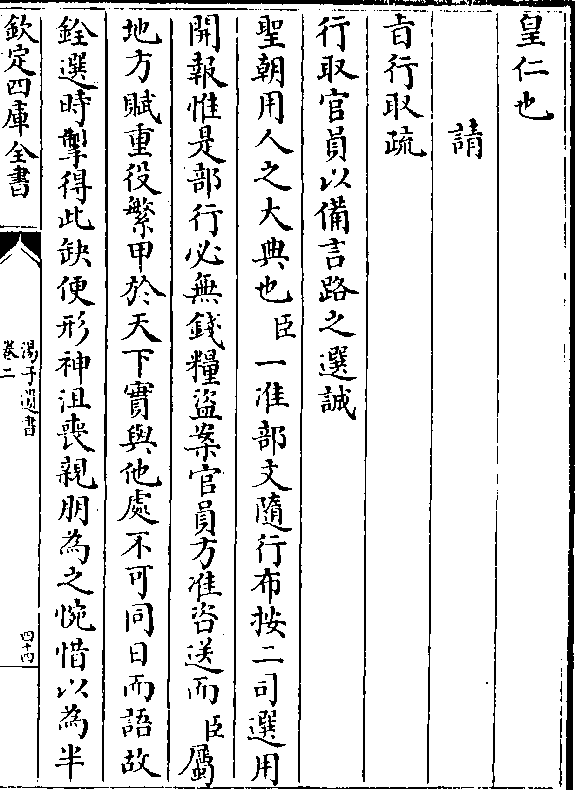 皇仁也
請
㫖行取疏
行取官員以備言路之選誠
聖朝用人之大典也臣一准部文隨行布按二司選用
開報惟是部行必無錢糧盜案官員方准咨送而臣屬
地方賦重役繁甲於天下實與他處不可同日而語故
銓選時掣得此缺便形神沮喪親朋為之惋惜以為半
欽定四庫全書
湯子遺書
卷二
四十四